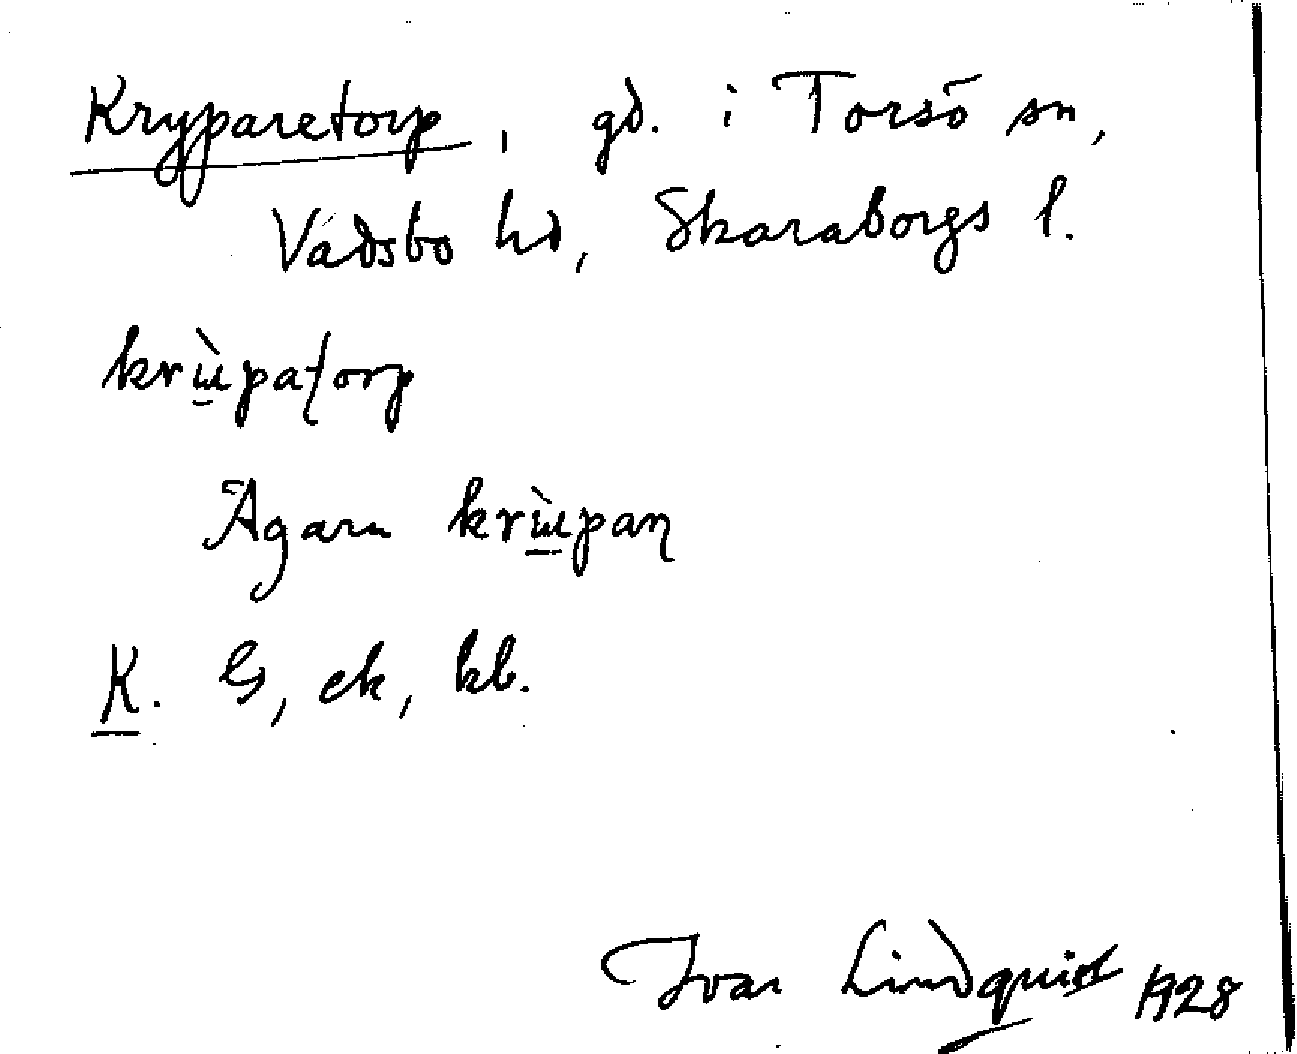 Kryparetorp, gd. i Torsö sn,
Vadsbo hd, Skaraborgs l.
krùpatorp
Ägarn krùpan
K. G, ek, kb.
Ivar Lindquist 1928